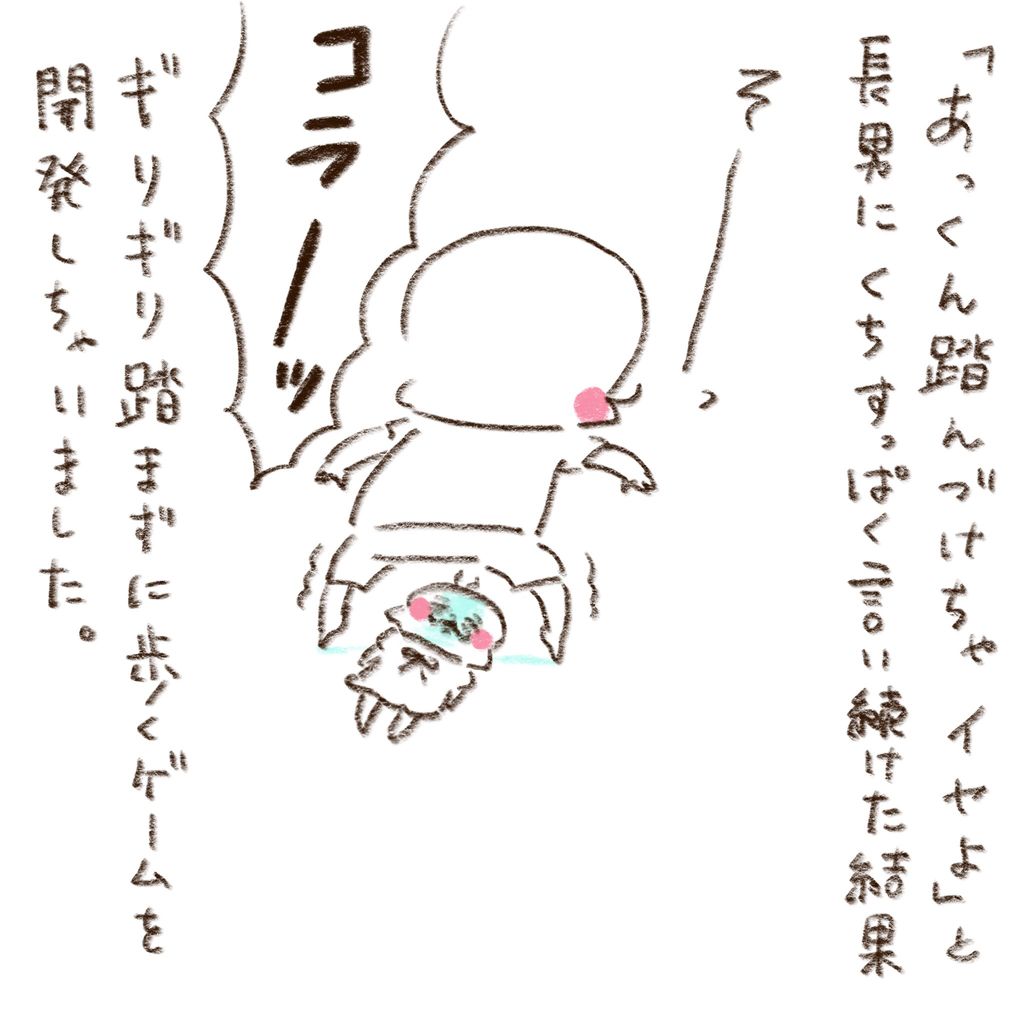 「あっくん踏んづけちゃイヤよ」と
長男にくちすっぱく言い続けた結果
そーっ
コラーッ
ギリギリ踏まずに歩くゲームを
開発しちゃいました。